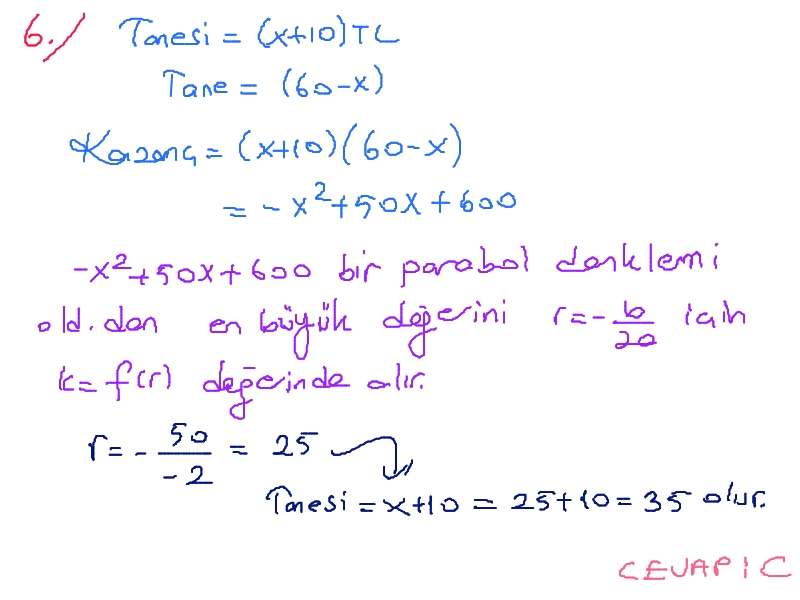 6./ Tanesi = (x+10)TL
Tane = (60-x)
Kazanç = (x+10)(60-x)
= -x²+50x+600
-x²+50x+600 bir parabol denklemi
old.dan en büyük değerini r=-b/2a için
k=f(r) değerinde alır.
r= - 50/-2 = 25
Tanesi = x+10 = 25+10 = 35 olur.
CEVAP : C